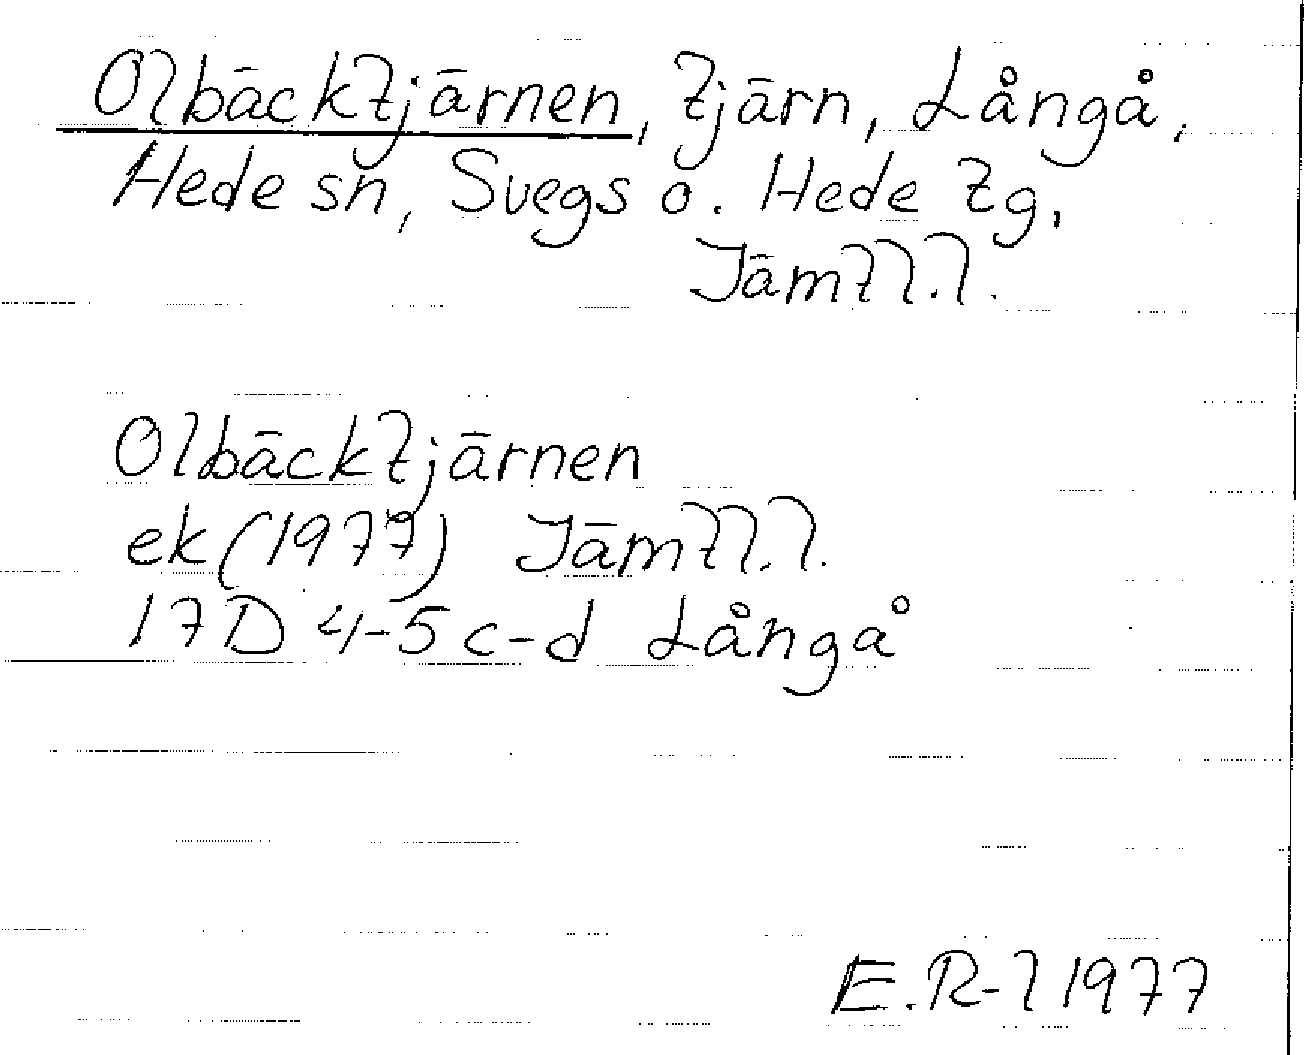 Olbäcktjärnen, tjärn, Långå,
Hede sn, Svegs o. Hede tg,
Jämtl.l.
Olbäcktjärnen
ek (1977) Jämtl.l.
17D 4-5 c-d Långå
E.R-l 1977